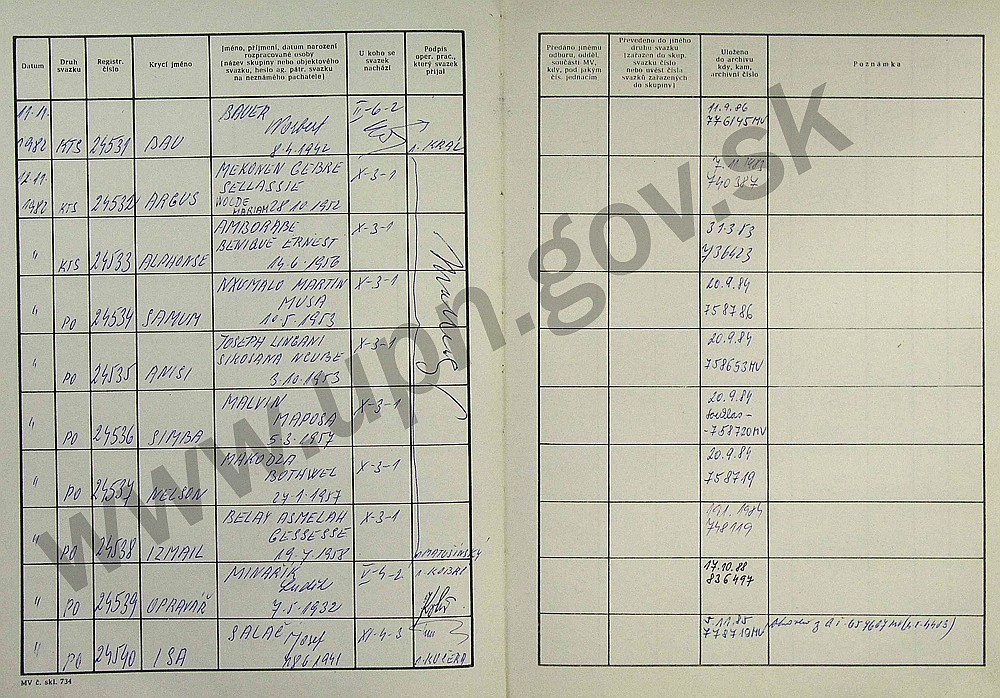 Datum
Druh svazku
Registr. číslo
Krycí jméno
Jméno, příjmení, datum narození
rozpracované osoby
(název skupiny nebo objektového
svazku, heslo ag. pátr. svazku
na neznámého pachatele)
U koho se
svazek
nachází
Podpis
oper. prac.,
který svazek
přijal
Předáno jinému
odboru, odděl.
součásti MV,
kdy, pod jakým
čís. jednacím
Převedeno do jiného
druhu svazku
(zařazen do skup.
svazku číslo
nebo uvést čísla
svazků zařazených
do skupiny)
Uloženo
do archivu
kdy, kam,
archivní číslo
Poznámka
11.11.
1982 KTS 24531 BAU
BAUER
Norbert
8.4.1942
II-6-2
KRÁL
11.9.86
776145 MV
12.11.
1982 KTS 24532 ARGUS
MEKONEN GEBRE
SELLASSIE
WOLDE
MARIAM 28.10.1952
X-3-1
7.11.1983
740387
" KTS 24533 ALPHONSE
AMBORABE
BENIQUE ERNEST
14.6.1956
X-3-1
31.3.83
736423
" PO 24534 SAMUM
NXUMALO MARTIN
MUSA
10.5.1953
X-3-1
20.9.84
758786
" PO 24535 ANISI
JOSEPH LINGANI
SIKOSANA NCUBE
3.10.1953
X-3-1
20.9.84
758653 MV
" PO 24536 SIMBA
MALVIN
MAPOSA
5.3.1957
X-3-1
20.9.84
-758720 MV
" PO 24537 NELSON
MAKODZA
BOTHWEL
27.1.1957
X-3-1
20.9.84
758719
" PO 24538 IZMAIL
BELAY ASMELAH
GESSESSE
19.7.1958
X-3-1
MATUŠÍNSKÝ
19.1.1984
748119
" PO 24539 OPRAVÁŘ
MINAŘÍK
Luděk
7.5.1932
V-4-2
17.10.88
836497
" PO 24540 ISA
SALAČ
Josef
18.6.1941
XI-4-3
KUČERA
5.11.85
778719 MV
MV č. skl. 734
www.upn.gov.sk